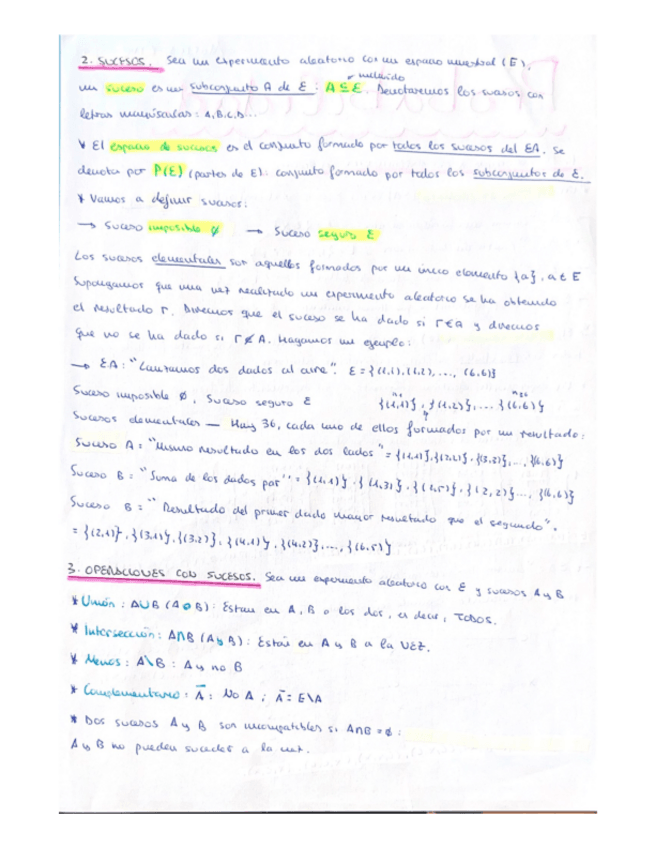 2. SUCESOS. Sea un experimento aleatorio con un espacio muestral (E),
incluido
un suceso es un subconjunto A de E : A⊆E. Denotaremos los sucesos con
letras mayúsculas: A, B, C, D...
* El espacio de sucesos es el conjunto formado por todos los sucesos del EA. Se
denota por P(E) (partes de E): conjunto formado por todos los subconjuntos de E.
* Vamos a definir sucesos:
→ Suceso imposible ∅ → Suceso seguro E
Los sucesos elementales son aquellos formados por un único elemento {a}, a ∈ E
Supongamos que una vez realizado un experimento aleatorio se ha obtenido
el resultado r. Diremos que el suceso se ha dado si r∈A y diremos
que no se ha dado si r∉A. Hagamos un ejemplo:
→ EA: "Lanzamos dos dados al aire". E = {(1,1),(1,2), ..., (6,6)}
Suceso imposible ∅, Suceso seguro E {(1,1)}, {(1,2)}, ... {(6,6)}
Sucesos elementales — Hay 36, cada uno de ellos formados por un resultado:
Suceso A = "Mismo resultado en los dos lados" = {(1,1)},{(2,2)},{(3,3)},...,{(6,6)}
Suceso B = "Suma de los dados par" = {(1,1)}, {(1,3)}, {(1,5)}, {(2,2)}..., {(6,6)}
Suceso B = "Resultado del primer dado mayor resultado que el segundo".
= {(2,1)}, {(3,1)}, {(3,2)}, {(4,1)}, {(4,2)}, ..., {(6,5)}
3. OPERACIONES CON SUCESOS. Sea un experimento aleatorio con E y sucesos A y B
* Unión : A∪B (A o B) : Están en A, B o los dos, es decir, TODOS.
* Intersección : A∩B (A y B) : Están en A y B a la VEZ.
* Menos : A\B : A y no B
* Complementario : Ā : No A ; Ā = E\A
* Dos sucesos A y B son incompatibles si A∩B = ∅ :
A y B no pueden suceder a la vez.